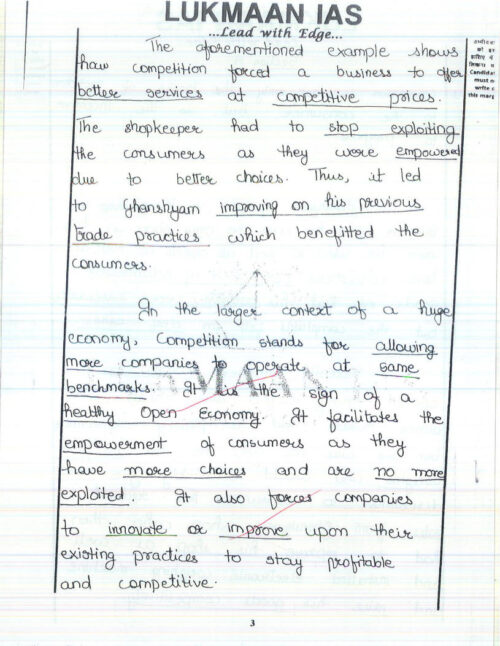 LUKMAAN IAS
...Lead with Edge...
The aforementioned example shows
how competition forced a business to offer
better services at competitive prices.
The shopkeeper had to stop exploiting
the consumers as they were empowered
due to better choices. Thus, it led
to Ghanshyam improving on his previous
trade practices which benefitted the
consumers.
In the larger context of a huge
economy, Competition stands for allowing
more companies to operate at same
benchmarks. It is the sign of a
healthy Open Economy. It facilitates the
empowerment of consumers as they
have more choices and are no more
exploited. It also forces companies
to innovate or improve upon their
existing practices to stay profitable
and competitive.
3